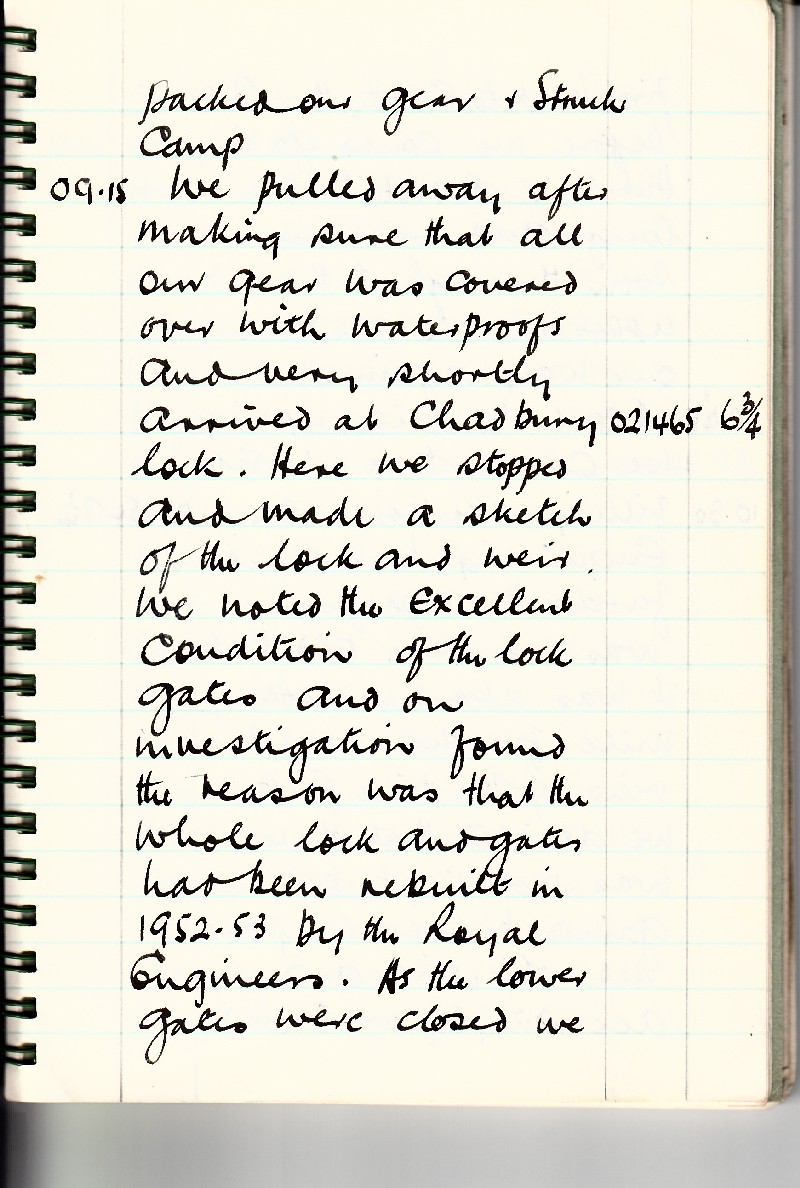 packed our gear + Struck
Camp
09.15 We pulled away after
making sure that all
our gear was covered
over with waterproofs
and very shortly
arrived at Chadbury 021465 6 3/4
lock. Here we stopped
and made a sketch
of the lock and weir.
We noted the Excellent
Condition of the lock
gates and on
investigation found
the reason was that the
whole lock and gates
had been rebuilt in
1952-53 by the Royal
Engineers. As the lower
gates were closed we